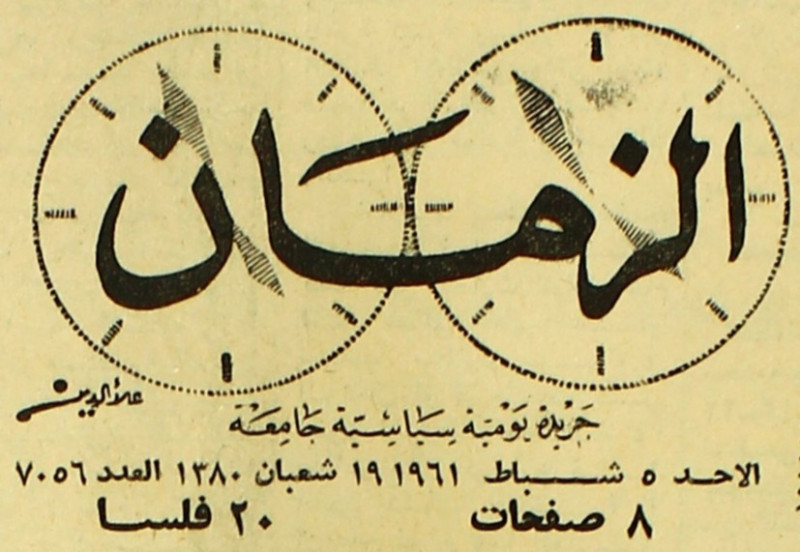 الزمان
علاء الدين
جريدة يومية سياسية جامعة
الاحد ٥ شباط ١٩٦١ ١٩ شعبان ١٣٨٠ العدد ٧٠٥٦
٨ صفحات ٢٠ فلسا